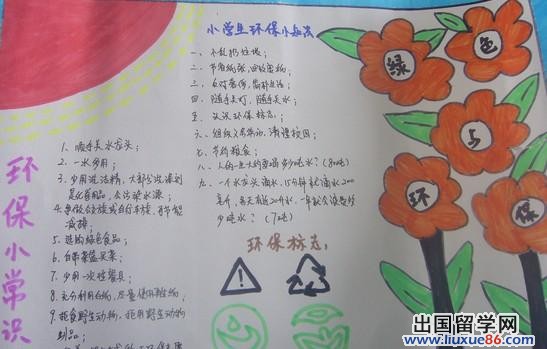 小学生环保小知识
一、不乱扔垃圾；
二、节省纸张，回收废纸；
三、
四、随手关灯，随手关水；
五、认识环保标志；
六、组织义务劳动，清理校园；
七、节约粮食；
八、人的一生大约要喝多少吨水？（80吨）
九、一个水龙头滴水，15分钟就滴水200
毫升，每天
少吨水？（7吨）
环保标志：
环保小常识
1、随手关水龙头；
2、一水多用；
3、少用洗洁精，大部分洗涤剂
是化学用品，会污染水源；
4、
减排；
5、选购绿色食品；
6、自带菜篮买菜；
7、少用一次性餐具；
8、充分利用白纸，尽量使用再生纸；
9、拒食野生动物，拒用野生动物
制品；
绿
色
与
环
保
出国留学网
www.liuxue86.com